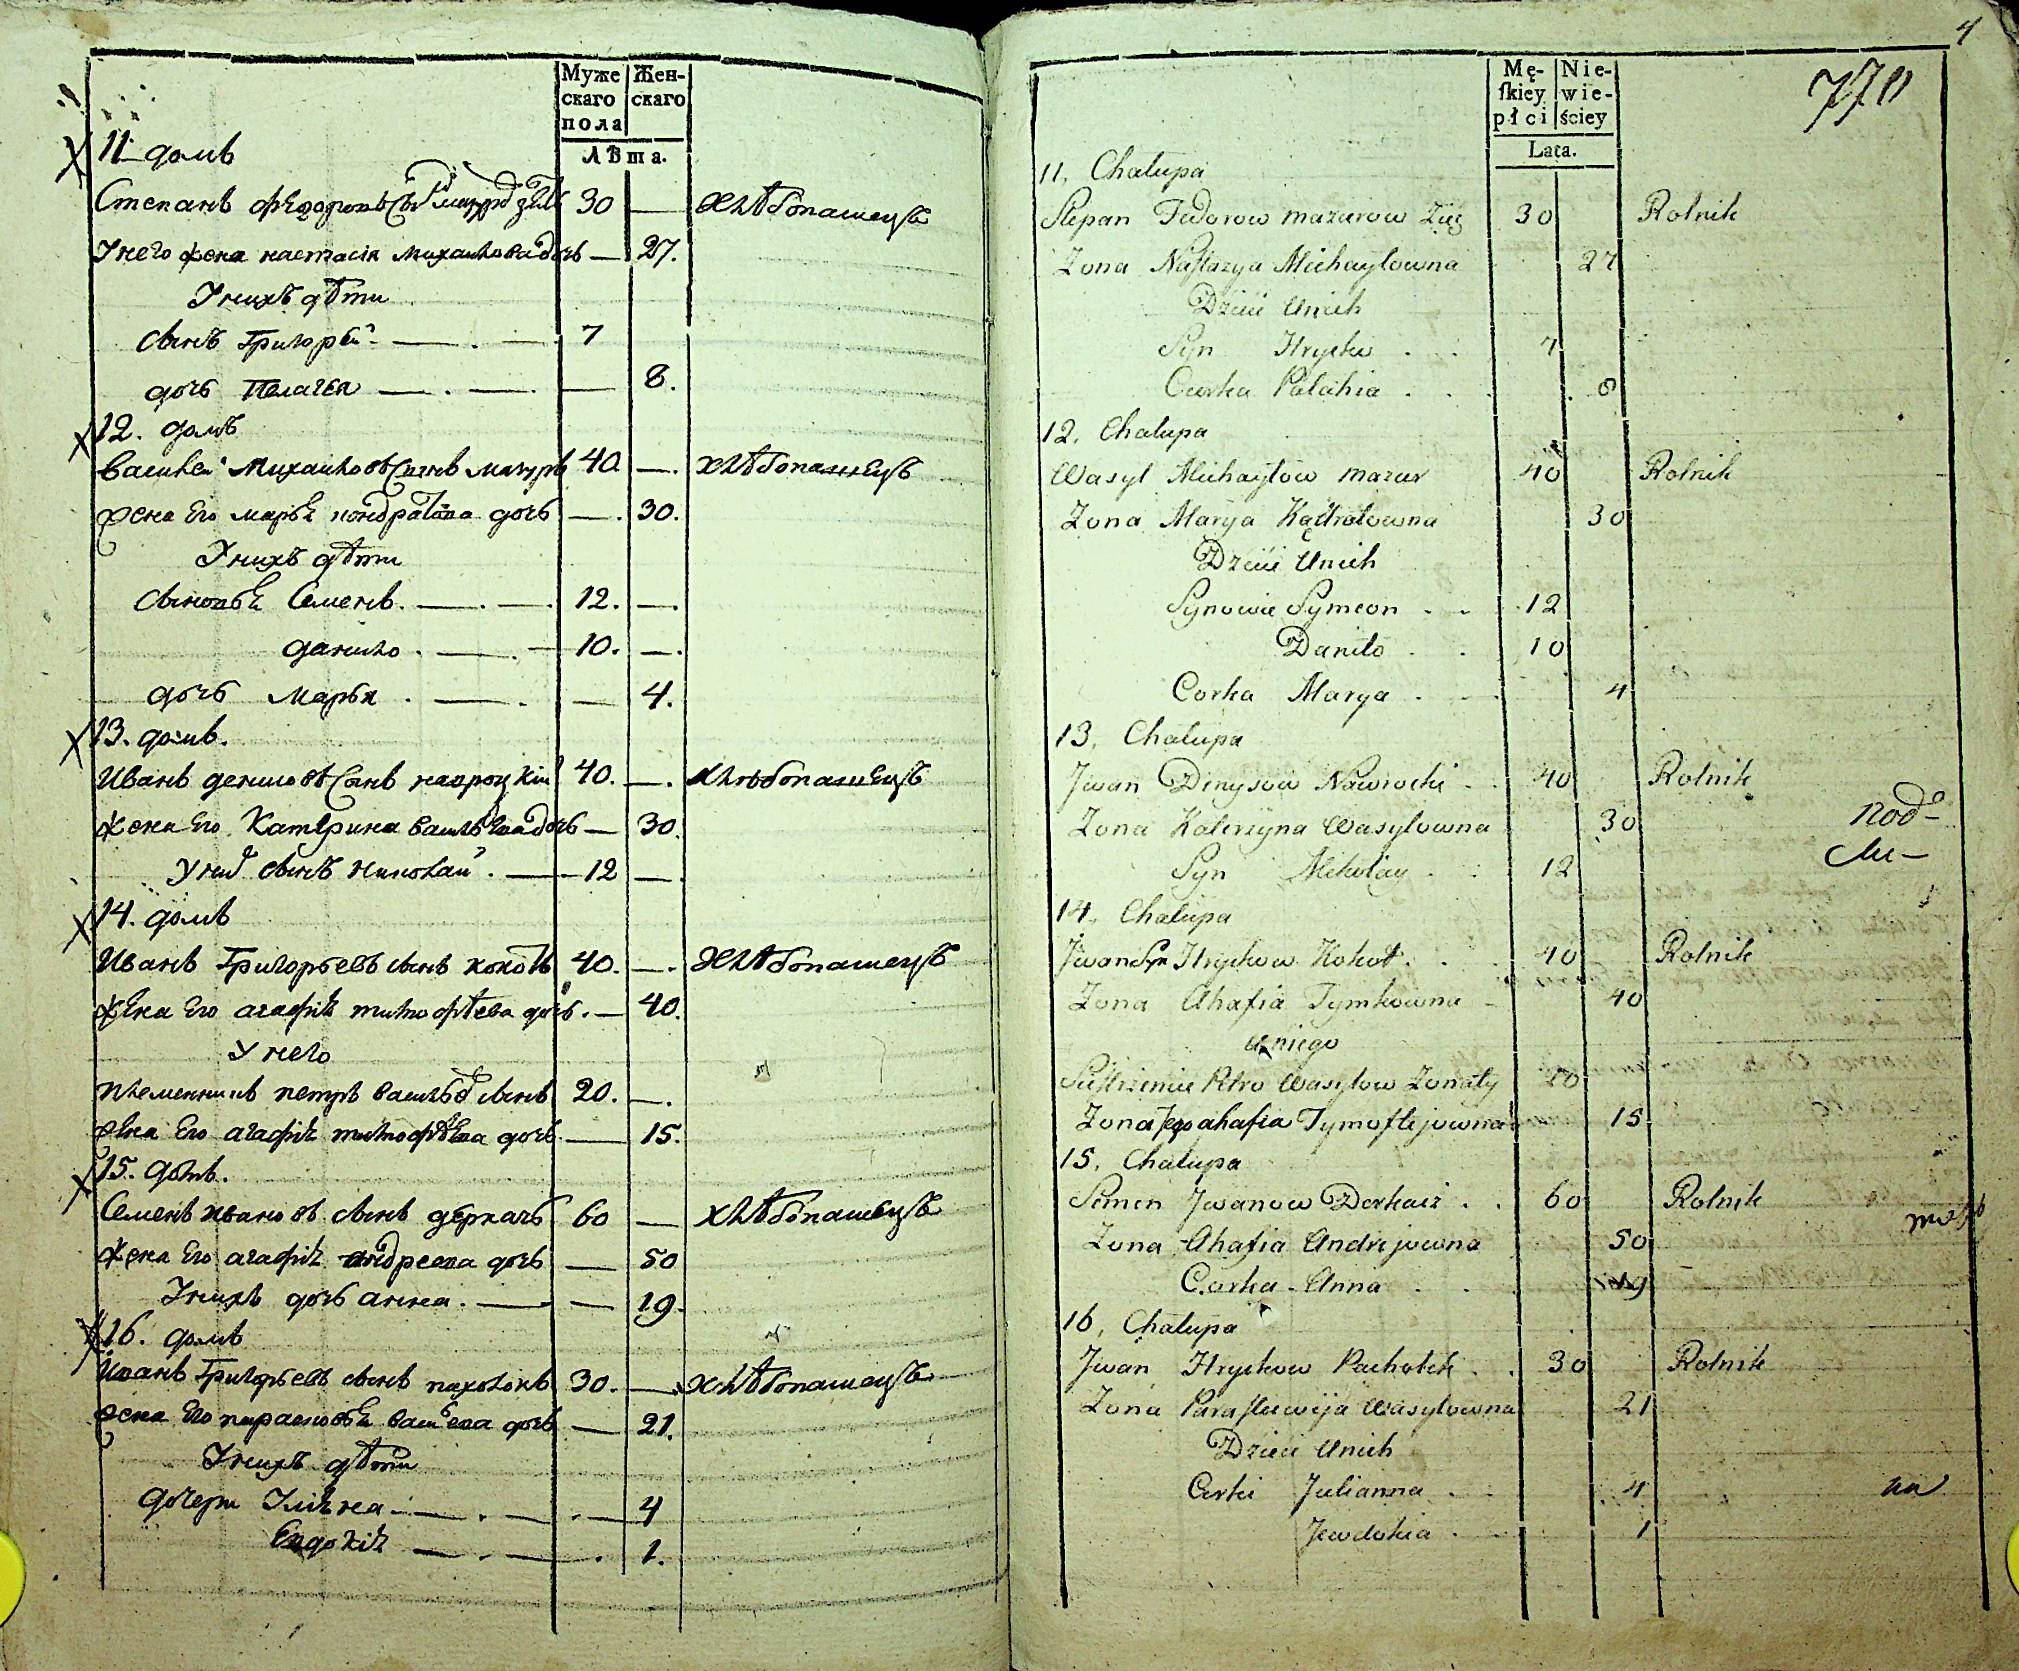 Муже Жен-
скаго скаго
пола
Лѣта.
11 домъ
Степанъ Федоровъ Сынъ мазуровъ зять 30 — хлѣбопашецъ
У него жена настасія михайлова дочь — 27.
У нихъ дѣти
сынъ Григорей — . — . 7
дочь Пелагея — . — . — 8.
12. домъ
василей михайловъ Сынъ мазуръ 40 —. хлѣбопашецъ
жена Его марья кондратова дочь —. 30.
У нихъ дѣти
сыновья Семенъ. —. —. 12. —.
данило . —. — 10. —.
дочь марья . —. — 4.
13. домъ.
Иванъ денисовъ Сынъ навроцкій 40. —. хлѣбопашецъ
жена Его Катерина васильева дочь — 30.
у них сынъ николай . — 12 —.
14. домъ
Иванъ Григорьевъ сынъ кокотъ 40. —. хлѣбопашецъ
жена Его агафія тимофѣева дочь. — 40.
У него
племенникъ петръ васильевъ сынъ 20. —.
жена Его агафія тимофѣева дочь. — 15.
15. домъ.
Семенъ ивановъ сынъ деркачъ 60 — хлѣбопашецъ
жена Его агафія андреева дочь — 50
У нихъ дочь анна. — — 19.
16. домъ
Иванъ Григорьевъ сынъ пахолокъ 30. —. хлѣбопашецъ
жена Его парасковья васильева дочь — 21.
У нихъ дѣти
дочери Уліяна — . — . — 4
Евдокія — . — . 1.
4
770
Mę- Nie-
ſkiey wie-
płci ściey
Lata.
11. Chałupa
Stepan Fedorow mazurow Zięć 30 Rolnik
Zona Naſtazya Michayłowna 27
Dzieci Unich
Syn Hryćko . . 7
Curka Palahia . . . 8
12. Chałupa
Wasyl Michayłow mazur 40 Rolnik
Zona Marya Kądratowna 30
Dzieci Unich
Synowie Symeon . . 12
Daniło . . 10
Corka Marya . . 4
13. Chałupa
Jwan Denysow Nawrocki . . 40 Rolnik
Zona Katerzyna Wasylowna 30
Syn Mikołay . . 12
14. Chałupa
Jwan Syn Hryćkow Kokot . . 40 Rolnik
Zona Ahafia Tymkowna - 40
u niego
Siestrzeniec Petro Wasylow Zonaty 20
Zona Jego ahafia Tymoftejowna 15
15. Chałupa
Semen Jwanow Derkacz . . 60 Rolnik
Zona Ahafia Andrejowna 50
Corka - Anna . . 19
16. Chałupa
Jwan Hryćkow Pachołek . . 30 Rolnik
Zona Paraſkewija Wasylowna 21
Dzieci Unich
Corki Julianna . . 4
Jewdokia . . 1